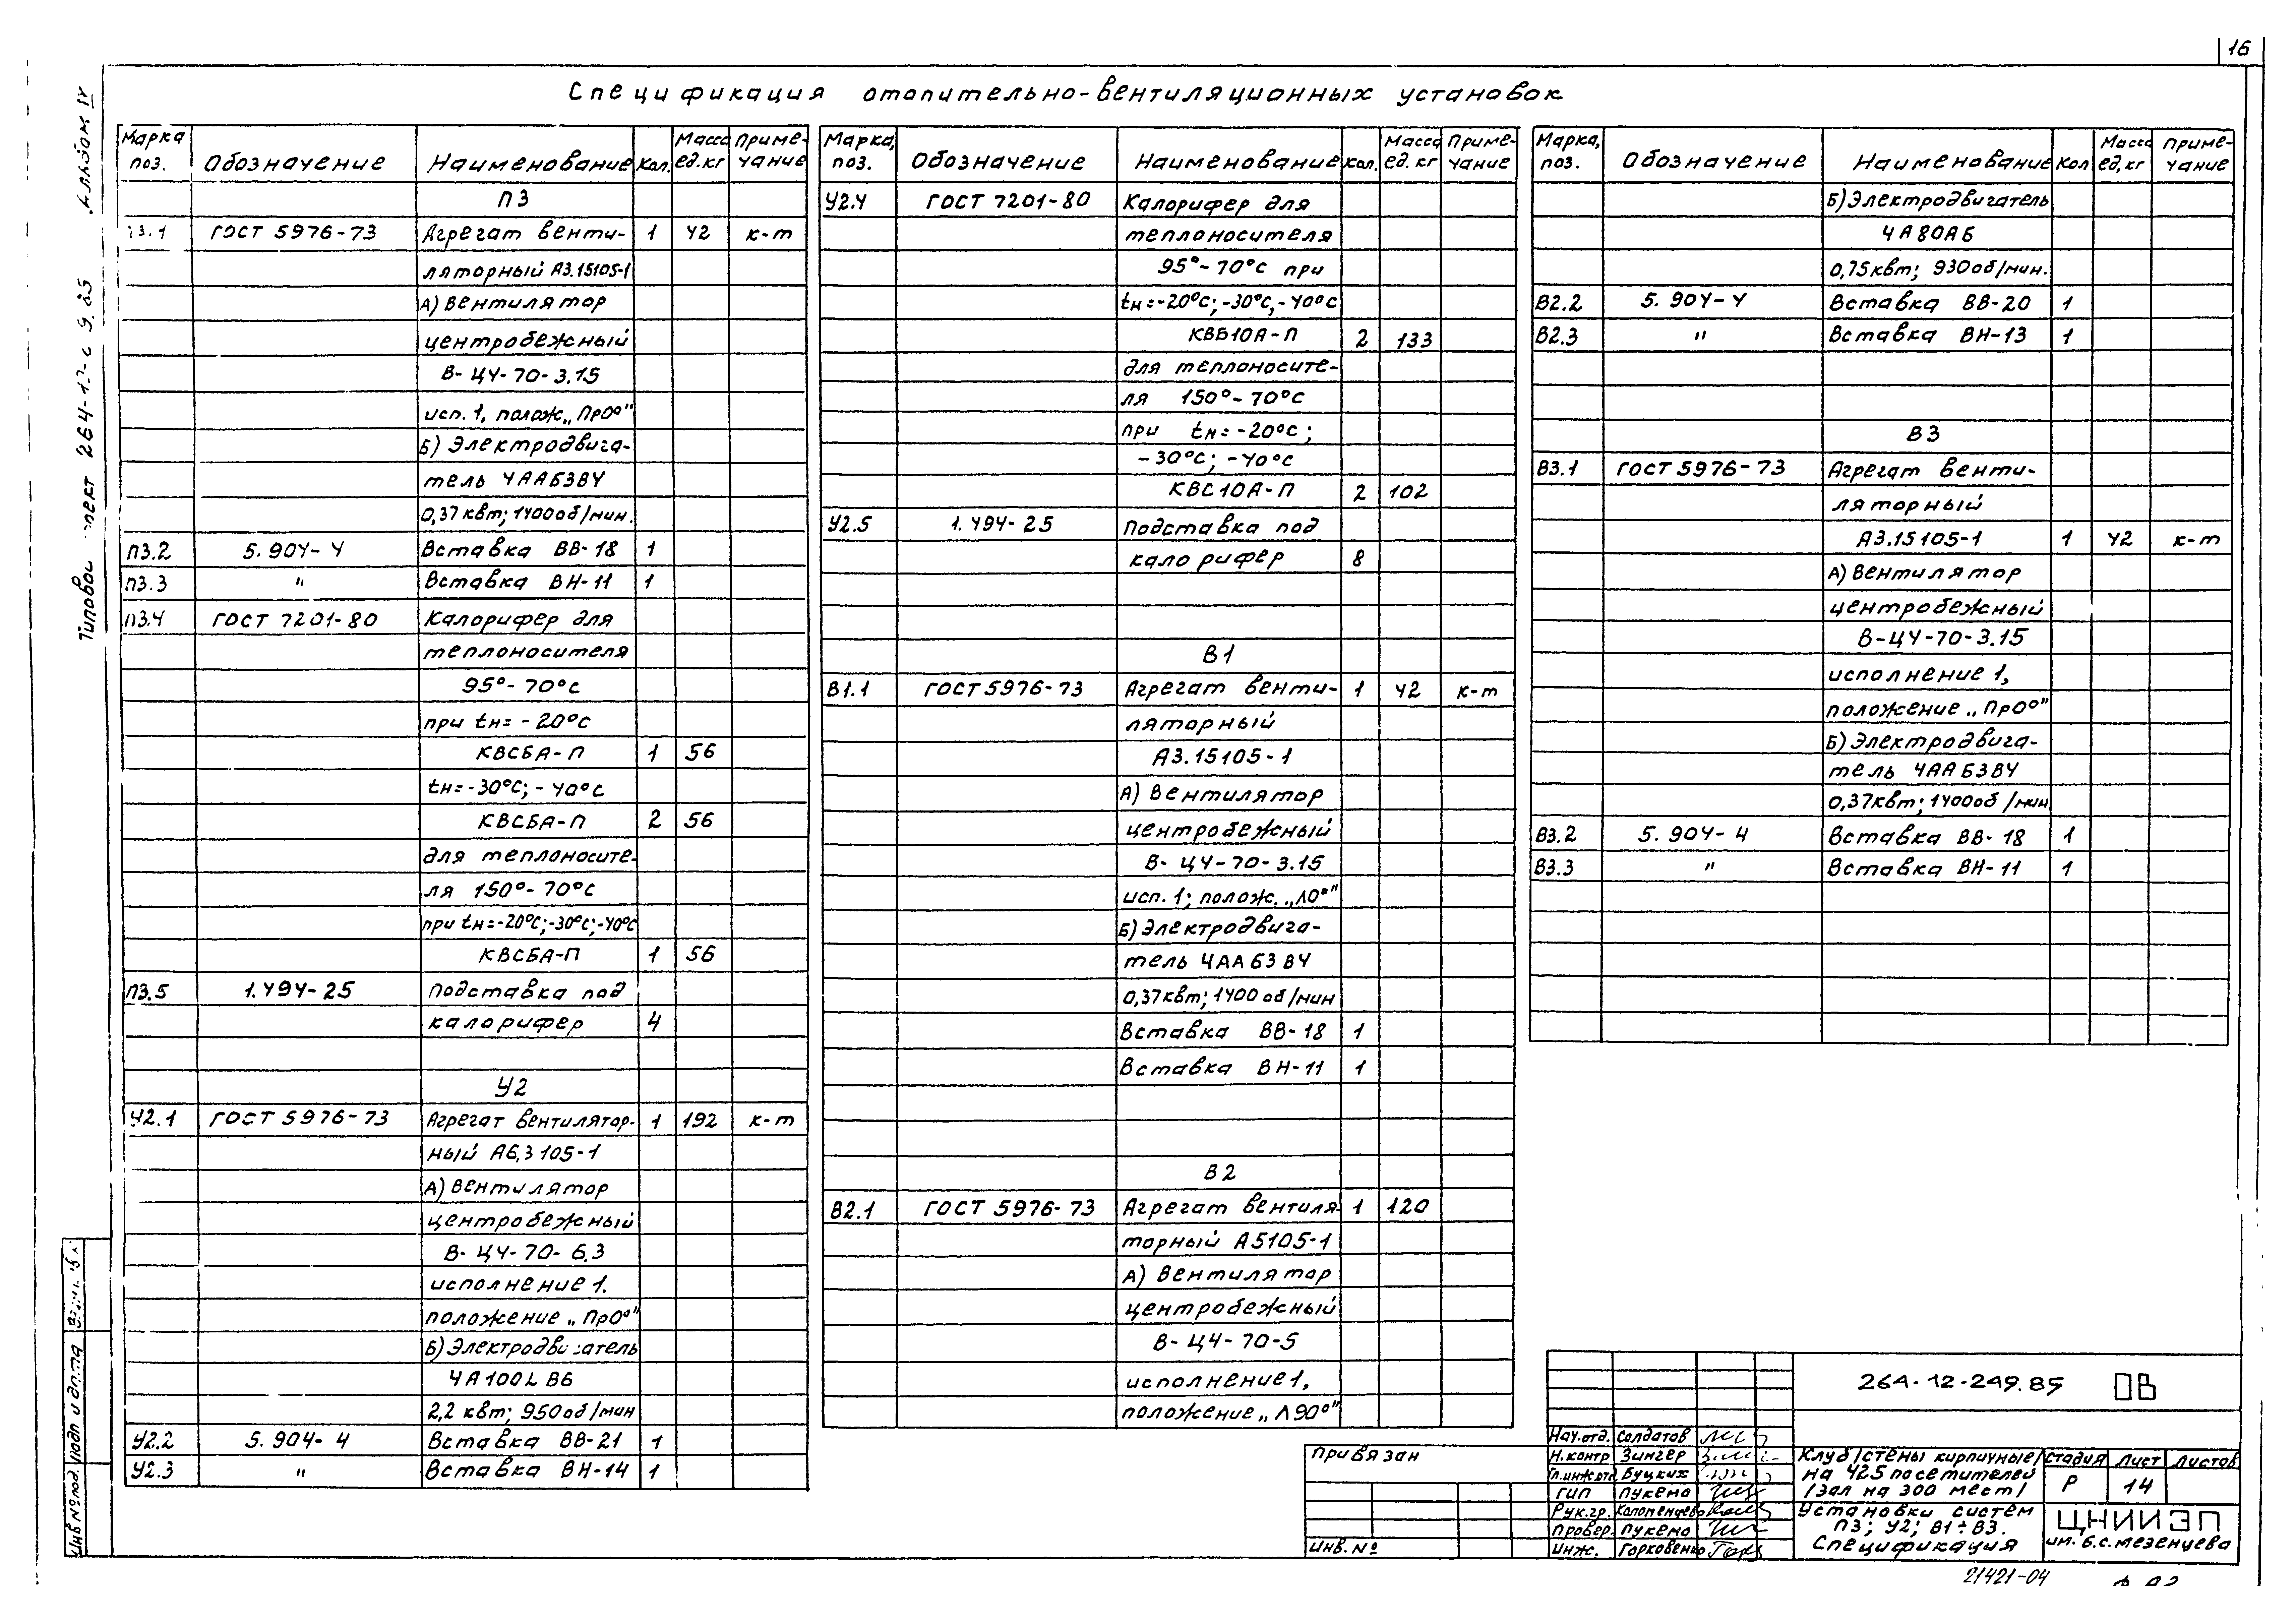 16
Спецификация отопительно-вентиляционных установок
Альбом IV
Марка поз. Обозначение Наименование Кол. Масса ед.кг Примечание
П3
П3.1 ГОСТ 5976-73 Агрегат венти- 1 42 к-т
ляторный А3.15105-1
А) Вентилятор
центробежный
В-Ц4-70-3.15
исп. 1, полож „Пр0°"
Б) Электродвига-
тель 4АА63В4
0,37 квт; 1400 об/мин.
П3.2 5.904-4 Вставка ВВ-18 1
П3.3 " Вставка ВН-11 1
П3.4 ГОСТ 7201-80 Калорифер для
теплоносителя
95°-70°С
при tн=-20°С
КВС6А-П 1 56
tн=-30°С; -40°С
КВС6А-П 2 56
для теплоносите-
ля 150°-70°С
при tн=-20°С;-30°С;-40°С
КВС6А-П 1 56
П3.5 1.494-25 Подставка под
калорифер 4
У2
У2.1 ГОСТ 5976-73 Агрегат вентилятор- 1 192 к-т
ный А6,3 105-1
А) Вентилятор
центробежный
В-Ц4-70-6.3
исполнение 1.
положение „Пр0°"
Б) Электродвигатель
4А100L В6
2,2 квт; 950 об/мин
У2.2 5.904-4 Вставка ВВ-21 1
У2.3 " Вставка ВН-14 1
Марка, поз. Обозначение Наименование Кол. Масса ед.кг Примечание
У2.4 ГОСТ 7201-80 Калорифер для
теплоносителя
95°-70°С при
tн=-20°С; -30°С, -40°С
КВБ10А-П 2 133
для теплоносите-
ля 150°-70°С
при tн=-20°С;
-30°С; -40°С
КВС10А-П 2 102
У2.5 1.494-25 Подставка под
калорифер 8
В1
В1.1 ГОСТ 5976-73 Агрегат венти- 1 42 к-т
ляторный
А3.15105-1
А) Вентилятор
центробежный
В-Ц4-70-3.15
исп. 1; полож. „Л0°"
Б) Электродвига-
тель 4АА63В4
0,37 квт; 1400 об/мин
Вставка ВВ-18 1
Вставка ВН-11 1
В2
В2.1 ГОСТ 5976-73 Агрегат вентиля- 1 120
торный А5105-1
А) Вентилятор
центробежный
В-Ц4-70-5
исполнение 1,
положение „Л90°"
Марка, поз. Обозначение Наименование Кол Масса ед,кг Примечание
Б) Электродвигатель
4А80А6
0,75 квт; 930 об/мин.
В2.2 5.904-4 Вставка ВВ-20 1
В2.3 " Вставка ВН-13 1
В3
В3.1 ГОСТ 5976-73 Агрегат венти-
ляторный
А3.15105-1 1 42 к-т
А) Вентилятор
центробежный
В-Ц4-70-3.15
исполнение 1,
положение „Пр0°"
Б) Электродвига-
тель 4АА63В4
0,37 квт; 1400 об/мин
В3.2 5.904-4 Вставка ВВ-18 1
В3.3 " Вставка ВН-11 1
Инв № под. Подп и дата
Привязан
Инв. №
264-12-249.85 ОВ
Нач.отд. Солдатов
Н.контр Зингер
Гл.инж отд Буцких
ГИП Пукемо
Рук.гр. Коломенцева
Провер. Пукемо
Инж. Горковенко
Клуб /стены кирпичные/
на 425 посетителей
/зал на 300 мест/
Стадия Лист Листов
Р 14
Установки систем
П3; У2; В1÷В3.
Спецификация
ЦНИИЭП
им. Б.С. Мезенцева
21421-04